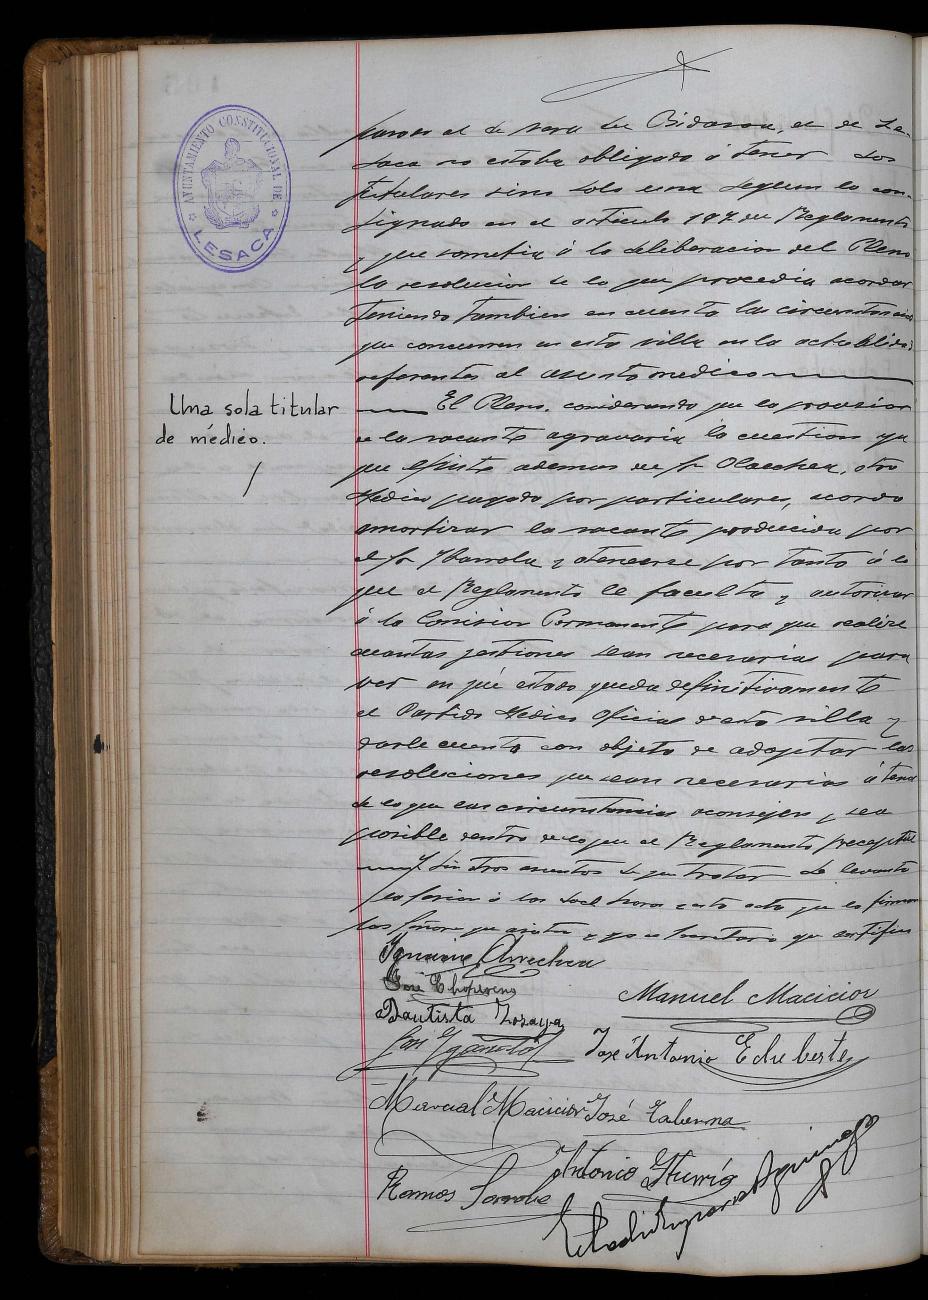 AYUNTAMIENTO CONSTITUCIONAL DE
LESACA
el de Vera de Bidasoa, el de Le-
saca no estaba obligado á tener dos
titulares sino solo una segun lo con-
signado en el articulo 107 del Reglamento
y que sometia á la deliberacion del Pleno
la resolucion de lo que procedia acordar
teniendo tambien en cuenta las circunstancias
que concurren en esta villa en la actualidad
referentes al asunto medico
Una sola titular
de médico.
El Pleno, considerando que la provision
de la vacante agravaria la cuestion ya
que existe ademas del Sr Olaechea, otro
Medico pagado por particulares, acordo
amortizar la vacante producida por
el Sr Ybarrola y atenerse por tanto á lo
que el Reglamento le faculta y autorizar
á la Comision Permanente para que realice
cuantas gestiones sean necesarias para
ver en qué estado queda definitivamente
el Partido Medico Oficial de esta villa y
darle cuenta con objeto de adoptar las
resoluciones que sean necesarias á tenor
de lo que las circunstancias aconsejen y sea
posible dentro de lo que el Reglamento preceptua
Y sin otros asuntos de que tratar se levantó
la sesion á las hora esta acta que la firman
los Señores que asisten y yo el Secretario que certifico
Ignacio Arrechea
José
Manuel Macicior
Bautista Zozaya
José
José Antonio Echeberte
Marcial Macicior
José Taberna
Antonio Iturria
Ramos